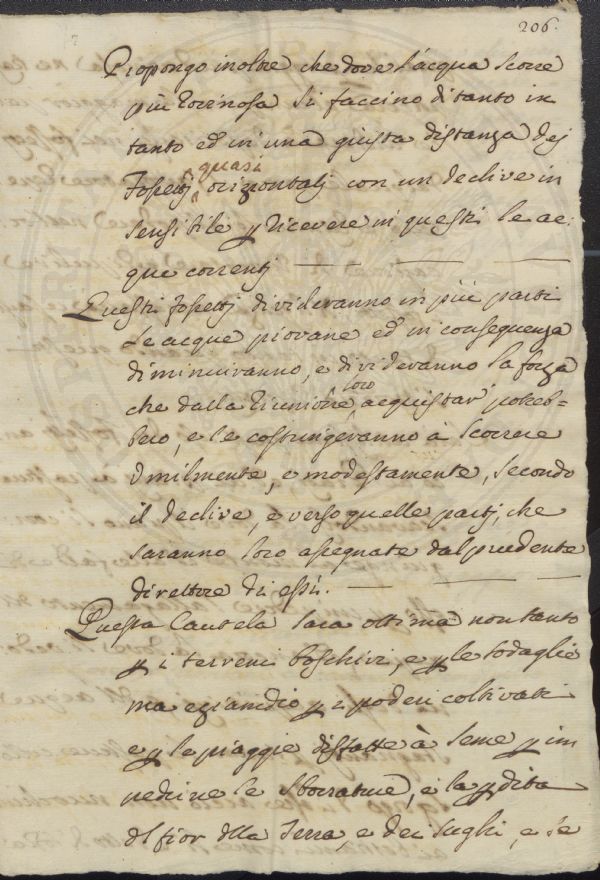 206.
Propongo inoltre che dove l'acqua scorre
più torrinosa si faccino di tanto in
tanto ed in una giusta distanza dej
quasi
Fossettj orizontalj con un declive in
sensibile p ricevere in questi le ac:
que correntj
Questi fossettj divideranno in più parti
Le acque piovane ed in consequenza
diminuiranno, e divideranno la forza
loro
che dalla riunione acquistar' potreb=
bero, e le costringeranno à scorrere
Umilmente, e modestamente, secondo
il declive, e verso quelle partj, che
saranno loro assegnate dal prudente
direttore di essi.
Questa Cautela sara ottima non tanto
p i terreni boschivi, e p le sodaglie
ma eziandio p i poderi coltivati
e p le piaggie à seme p im
pedirne le Sborrature, e la pdita
del fior della Terra, e dei sughi, e se